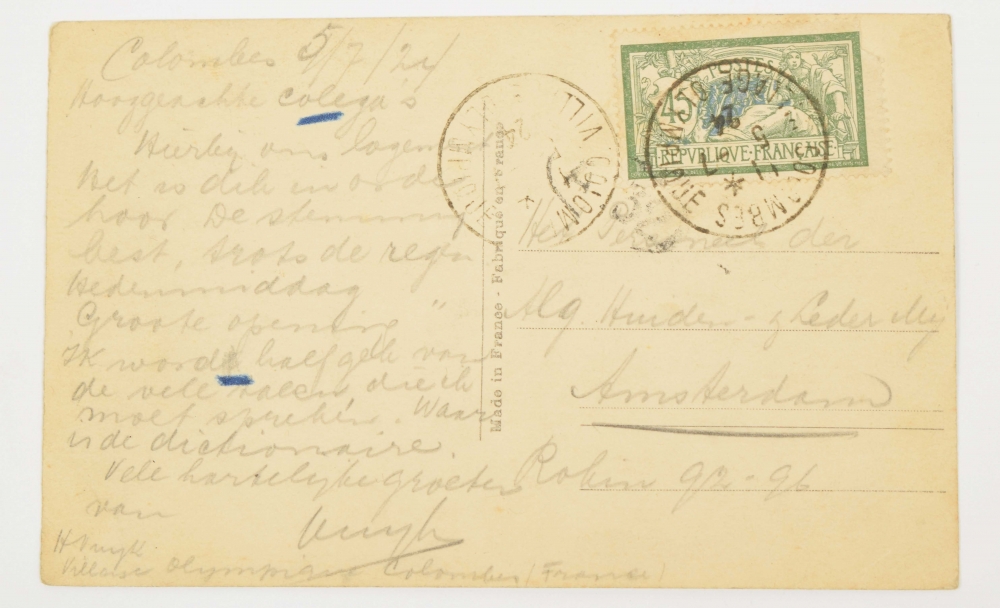 Colombes 5/7/24
Hooggeachte colega's
Hierbij ons logement
Het is dik in orde
hoor De stemming
best, trots de regen
Hedenmiddag
Groote opening "
Ik wordt half gek van
de vele talen die ik
moet spreken. Waar
is de dictionaire.
Vele hartelijke groeten
van
Vuyk
H Vuyk
Village Olympique Colombes (France)
Made in France - Fabriqué en France
45
POSTES
REPVBLIQVE · FRANÇAISE
COLOMBES VILLAGE OLYMPIQUE
11
5 7
24
Het Personeel der
Alg. Huiden- & Leder My
Amsterdam
Rokin 92-96